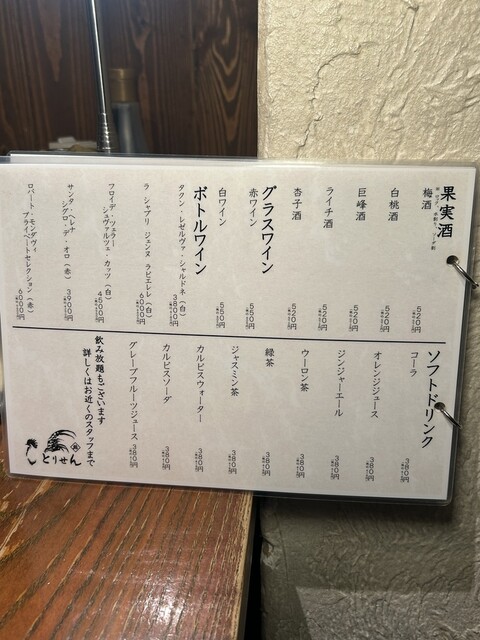 果実酒
梅酒 520円
白桃酒 520円
巨峰酒 520円
ライチ酒 520円
杏子酒 520円
グラスワイン
赤ワイン 550円
白ワイン 550円
ボトルワイン
タケン・レゼルヴァ・シャルドネ(白) 3800円
ラ シャブリ ジェンヌ ラビエレレ(白) 6000円
フロイデ・ツェラー
シュヴァルツェ・カッツ(白) 4500円
サンタ・ヘレナ
シグロ・デ・オロ(赤) 3900円
ロバート・モンダヴィ
プライベートセレクション(赤) 6000円
ソフトドリンク
コーラ 380円
オレンジジュース 380円
ジンジャーエール 380円
ウーロン茶 380円
緑茶 380円
ジャスミン茶 380円
カルピスウォーター 380円
カルピスソーダ 380円
グレープフルーツジュース 380円
飲み放題もございます
詳しくはお近くのスタッフまで
とりせん